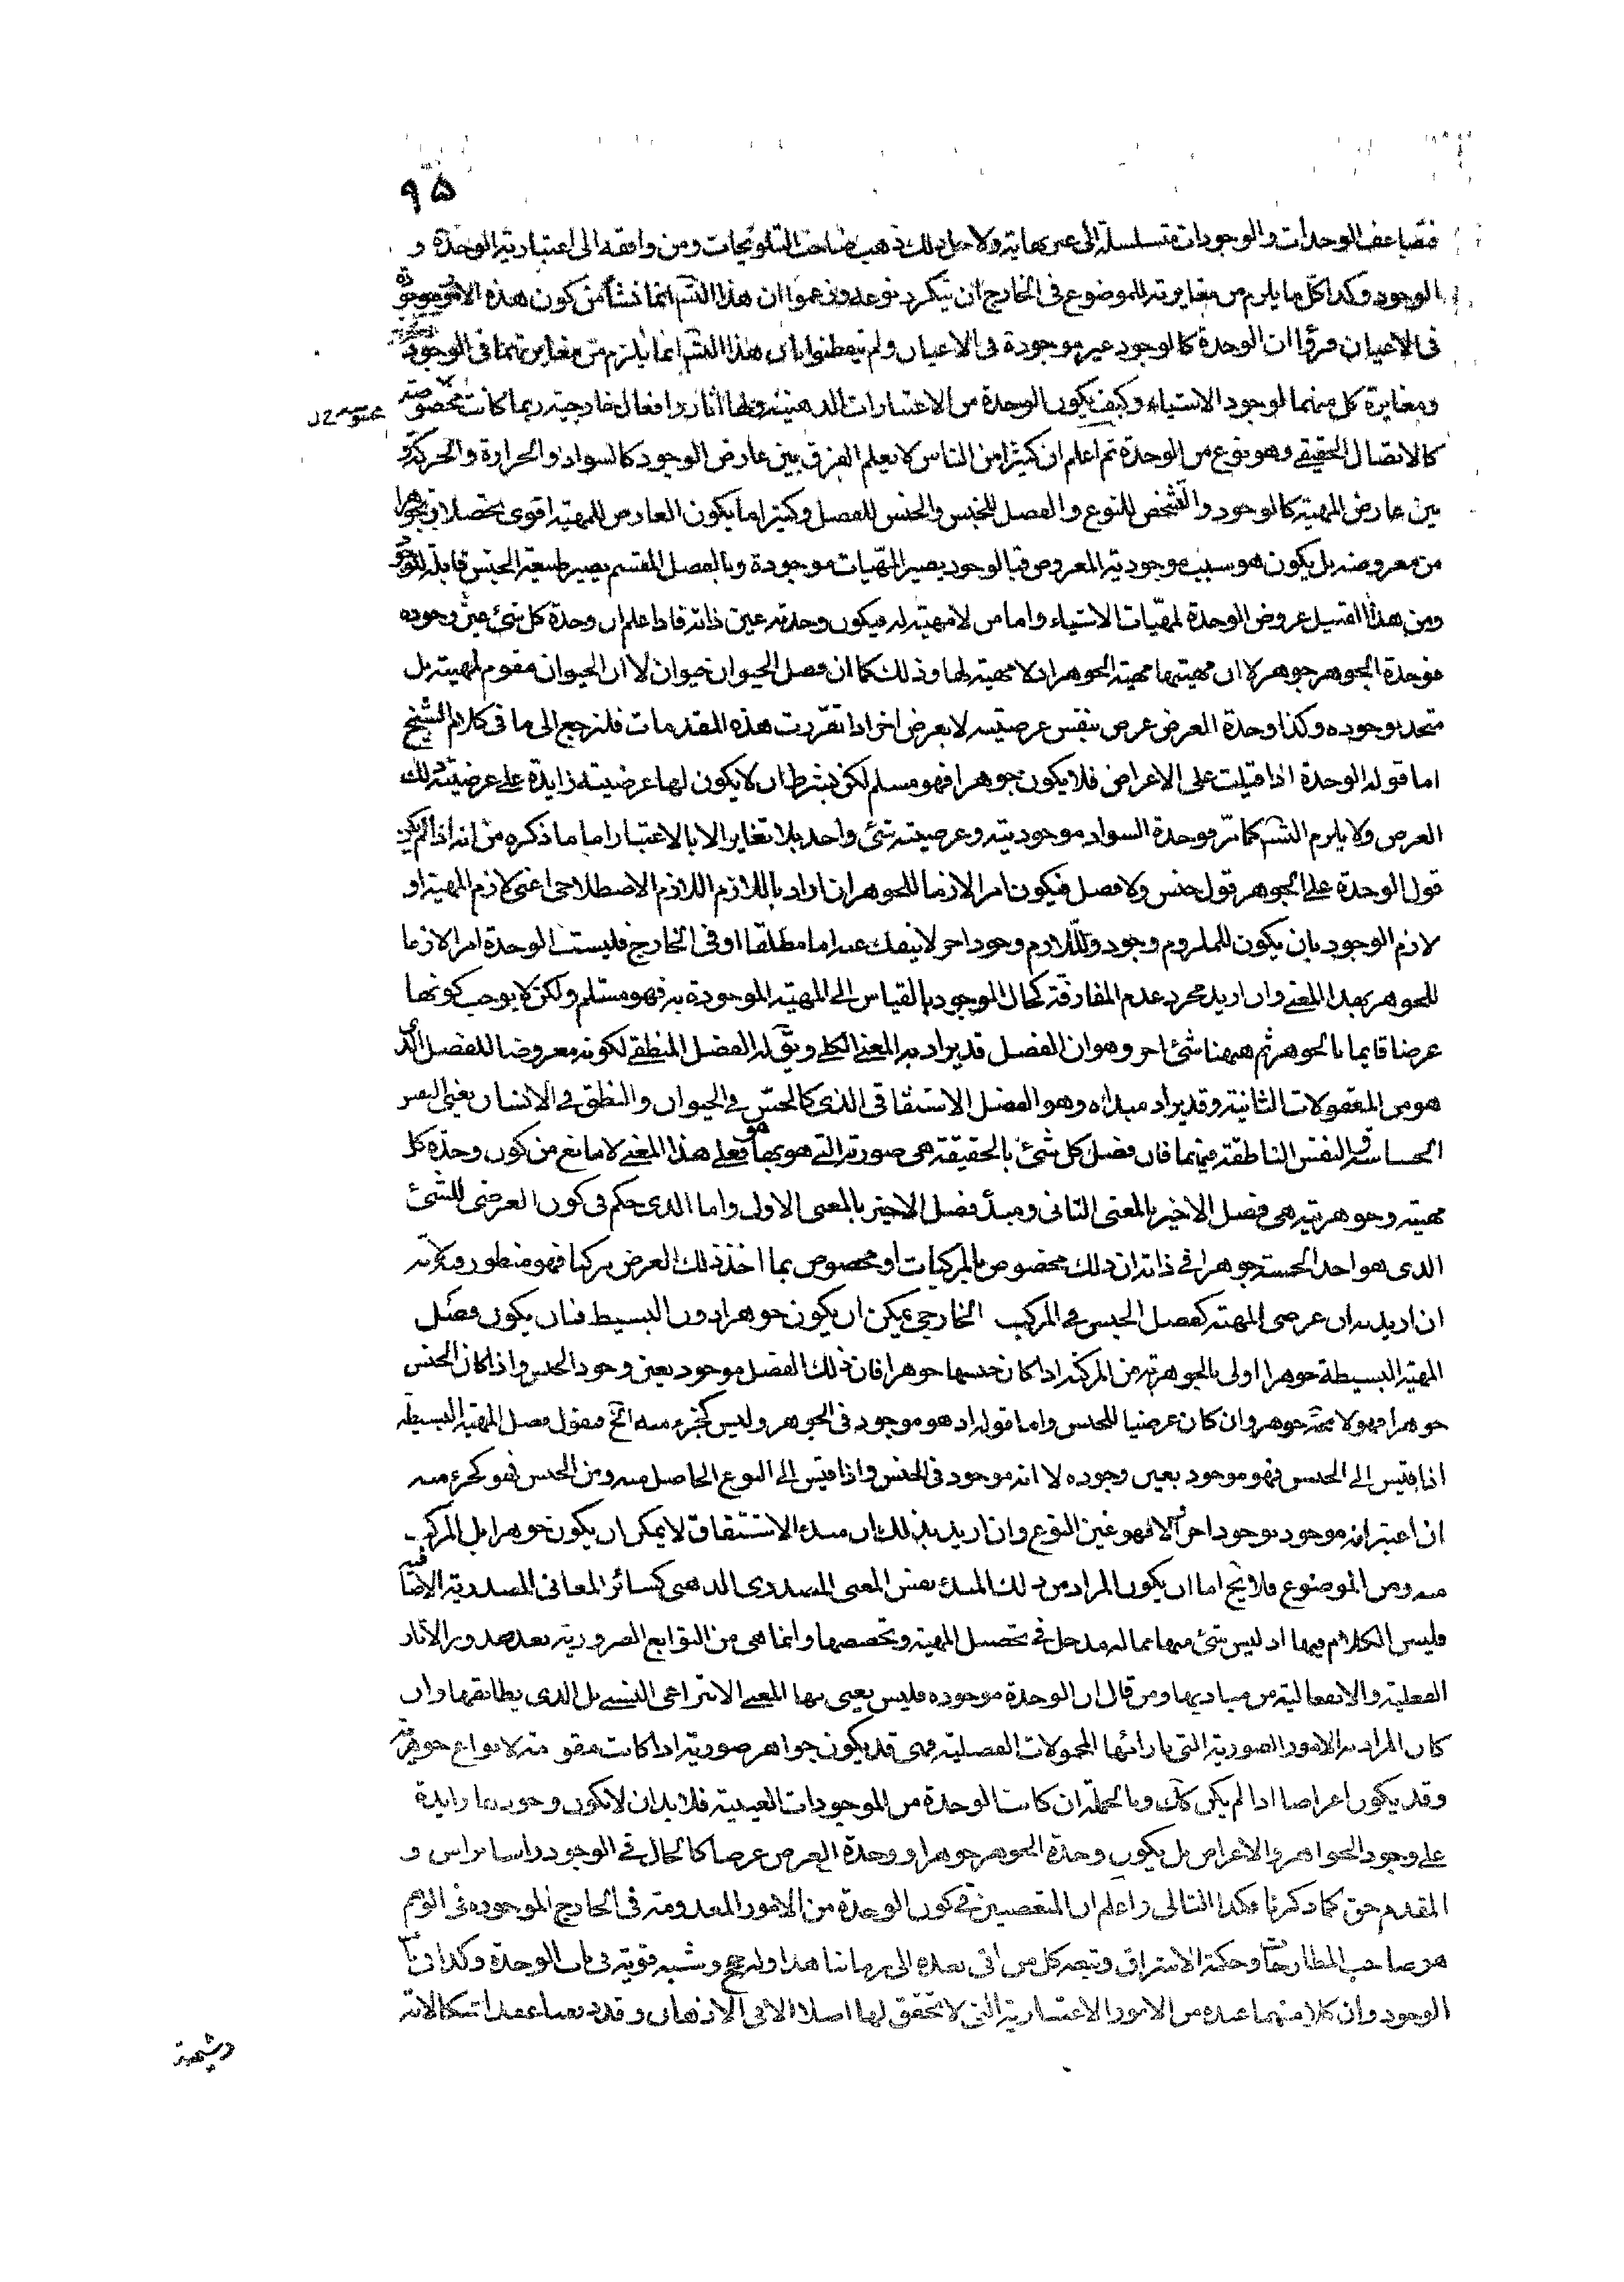 ٩٥
فتضاعف الوحدات والوجودات متسلسلة الى غير نهاية ولاجل ذلك ذهب صاحب التلويحات ومن وافقه الى اعتبارية الوحدة و
الوجود وكذا كل ما يلزم من مغايرته للموضوع فى الخارج ان يتكرر نوعه وزعموا ان هذا التس انما نشأ من كون هذه الامور موجودة
فى الاعيان فرؤا ان الوحدة كالوجود غير موجودة فى الاعيان ولم يتفطنوا بان هذا التس انما يلزم من مغايرتهما فى الوجود
ومغايرة كل منهما لوجود الاشياء وكيف يكون الوحدة من الاعتبارات الذهنية ولها آثار وافعال خارجية ربما كانت مخصوصة
كالاتصال الحقيقى وهو نوع من الوحدة ثم اعلم ان كثيرا من الناس لا يعلم الفرق بين عارض الوجود كالسواد والحرارة والحركة و
بين عارض المهية كالوجود والتشخص للنوع والفصل للجنس والجنس للفصل وكثيرا ما يكون العارض للمهية اقوى تحصلا وتجوهرا
من معروضه بل يكون هو سبب موجودية المعروض فبالوجود يصير المهيات موجودة وبالفصل المقسم يصير طبيعة الجنس قابلة للوجود
ومن هذا القبيل عروض الوحدة لمهيات الاشياء واما من لا مهية له فيكون وحدته عين ذاته فاذا علم ان وحدة كل شئ عين وجوده
فوحدة الجوهر جوهر لا ان مهيتها مهية الجوهر اذ لا مهية لها وذلك كما ان فصل الحيوان حيوان لا ان الحيوان مقوم لمهيته بل
متحد بوجوده وكذا وحدة العرض عرض بنفس عرضيته لا بعرض اخر اذا تقررت هذه المقدمات فلنرجع الى ما فى كلام الشيخ
اما قوله الوحدة اذا قيلت على الاعراض فلا يكون جوهرا فهو مسلم لكن بشرط ان لا يكون لها عرضية زايدة على عرضية ذلك
العرض ولا يلزم التس كما مر فوحدة السواد موجوديته وعرضيته شئ واحد بلا تغاير الا بالاعتبار اما ما ذكره من انه اذا لم يكن
قول الوحدة على الجوهر قول جنس ولا فصل فيكون امرا لازما للجوهر ان اراد باللازم اللازم الاصطلاحى اعنى لازم المهية او
لازم الوجود بان يكون للملزوم وجود وللازم وجود اخر لا ينفك عنه اما مطلقا او فى الخارج فليست الوحدة امرا لازما
للجوهر بهذا المعنى وان اريد مجرد عدم المفارقة كحال الوجود بالقياس الى المهية الموجودة به فهو مسلم ولكن لا يوجب كونها
عرضا قايما بالجوهر ثم ههنا شئ اخر وهو ان الفصل قد يراد به المعنى الكلى ويق له الفصل المنطقى لكونه معروضا للفصل الذى
هو من المعقولات الثانية وقد يراد مبدأه وهو الفصل الاشتقاقى الذى كالحس فى الحيوان والنطق فى الانسان يعنى النفس
الحساسة والنفس الناطقة فيهما فان فصل كل شئ بالحقيقة هى صورته التى هو بها هو فعلى هذا المعنى لا مانع من كون وحدة كل
مهية وجوهرية هى فصل الاخير بالمعنى الثانى ومبدأ فصل الاخير بالمعنى الاول واما الذى حكم فى كون العرضى للشئ
الذى هو احد الخمسة جوهرا فى ذاته ان ذلك مخصوص بالمركبات او مخصوص بما اخذ ذلك العرض مركبا فهو منظور فيه لانه
ان اريد به ان عرضى المهية كفصل الجنس فى المركب الخارجى يمكن ان يكون جوهرا دون البسيط فبان يكون فصل
المهية البسيطة جوهرا اولى بالجوهرية من المركبة اذا كان جنسها جوهرا فان ذلك الفصل موجود بعين وجود الجنس واذا كان الجنس
جوهرا فهو لا محة جوهر وان كان عرضيا للجنس واما قوله اذ هو موجود فى الجوهر وليس كجزء منه الخ فنقول فصل المهية البسيطة
اذا قيس الى الجنس فهو موجود بعين وجوده لا انه موجود فى الجنس واذا قيس الى النوع الحاصل منه ومن الجنس فهو كجزء منه
ان اعتبر انه موجود بوجود اخر والا فهو عين النوع وان اريد بذلك ان مبدء الاشتقاق لا يمكن ان يكون جوهرا بل المركب
منه ومن الموضوع فلا يخ اما ان يكون المراد من ذلك المبدء نفس المعنى المصدرى الذهنى كسائر المعانى المصدرية الاضافية
فليس الكلام فيها اذ ليس شئ منها مما له مدخل فى تحصيل المهية وتخصصها وانما هى من التوابع الضرورية بعد صدور الآثار
الفعلية والانفعالية من مباديها ومن قال ان الوحدة موجوده فليس يعنى بها المعنى الانتزاعى النسبى بل الذى يطابقها وان
كان المراد به الامور الصورية التى بازائها المحمولات الفصلية فهى قد يكون جواهر صورية اذا كانت مقومة لانواع جوهرية
وقد يكون اعراضا اذا لم يكن كك وبالجملة ان كانت الوحدة من الموجودات العينية فلا بد ان لا يكون وجودها زايدة
على وجود الجواهر والاعراض بل يكون وحدة الجوهر جوهرا ووحدة العرض عرضا كالحال فى الوجود راسا براس و
المقدم حق كما ذكرنا فكذا التالى واعلم ان المتعصبين فى كون الوحدة من الامور المعدومة فى الخارج الموجوده فى الوهم
هو صاحب المطارحات وحكمة الاشراق وتبعه كل من اتى بعده الى زماننا هذا وله حجج وشبه قوية فى باب الوحدة وكذا فى باب
الوجود وان كلا منهما عنده من الامور الاعتبارية التى لا تحقق لها اصلا الا فى الاذهان وقد